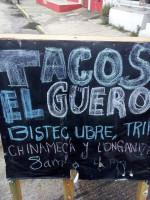 TACOS
EL GÜERO
BISTEC, UBRE, TRIP
CHINAMECA Y LONGANIZ
8am